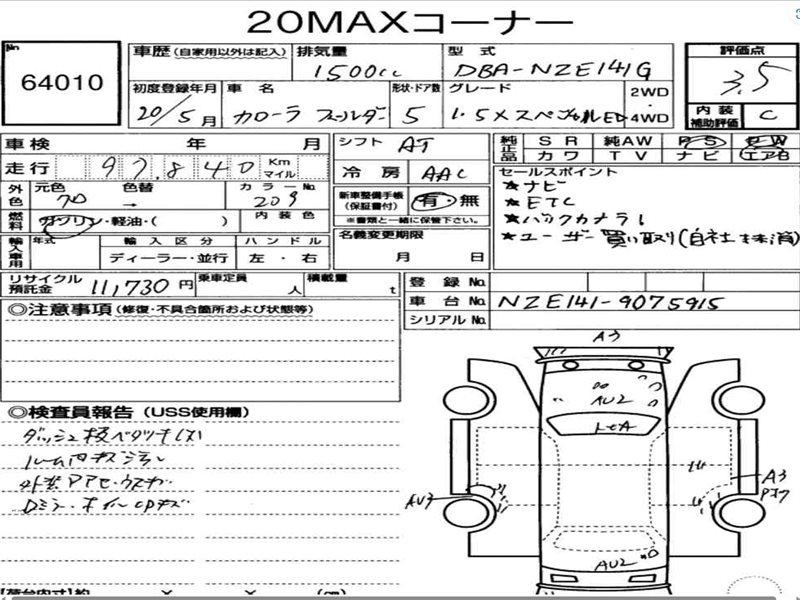 20MAXコーナー
No.
64010
車歴 (自家用以外は記入)
排気量
1500cc
型式
DBA-NZE141G
評価点
3.5
初度登録年月
20/5月
車名
カローラ フィールダー
形状・ドア数
5
グレード
1.5X スペシャルED
2WD
・
4WD
内装
補助評価
C
車検 年 月
シフト AT
純正品
SR 純AW PS PW
カワ TV ナビ エアB
走行 97,840 Km マイル
冷房 AAC
セールスポイント
★ナビ
★ETC
★バックカメラ
★ユーザー買い取り(自社未済)
外色
元色 70
色替 →
カラーNo. 209
新車整備手帳
(保証書付)
有・無
※書類と一緒に保管下さい。
燃料
ガソリン・軽油・( )
内装色
名義変更期限
月 日
輸入車用
年式
輸入区分
ディーラー・並行
ハンドル
左・右
リサイクル
預託金
11,730円
乗車定員
人
積載量
t
登録No.
車台No. NZE141-9075915
シリアルNo.
◎注意事項(修復・不具合箇所および状態等)
◎検査員報告(USS使用欄)
ダッシュ板ベタツキ
ルーム内キズ汚れ
A3
AU2
LEA
AU3
A3
AU2
荷台内寸
約 × × (cm)